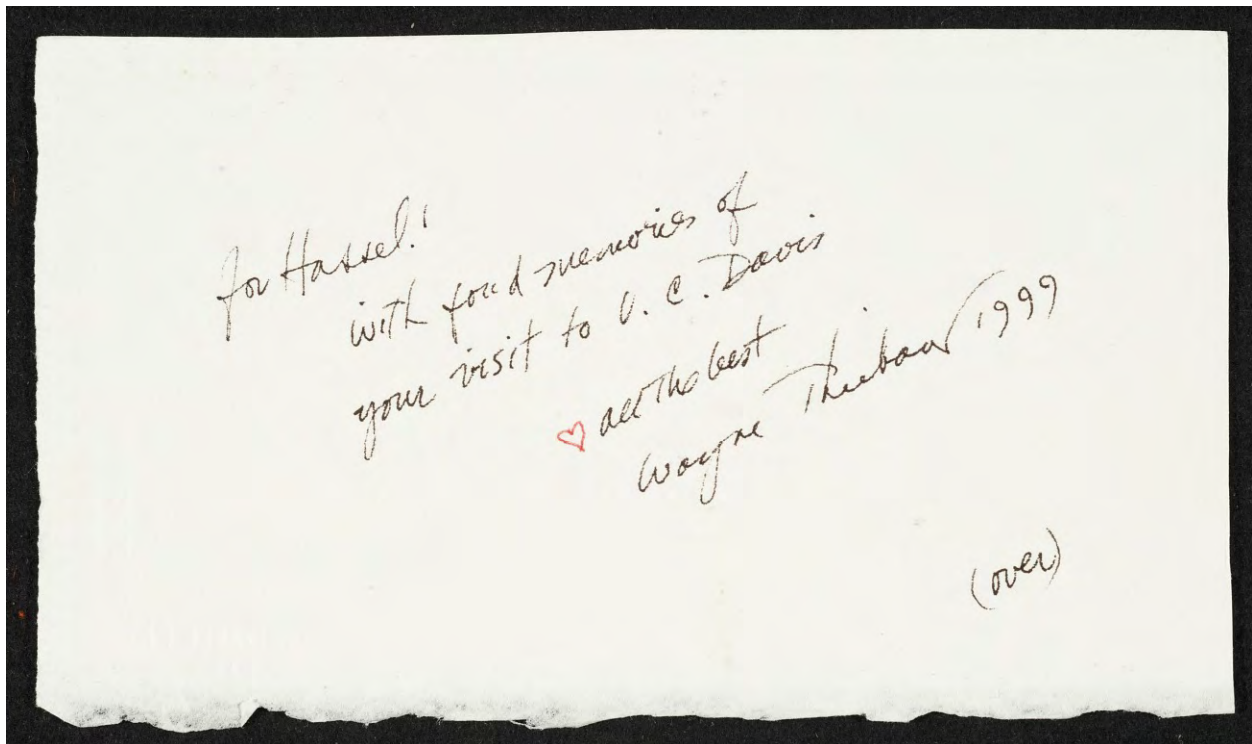 for Hassel!
with fond memories of
your visit to U.C. Davis
♡ all the best
Wayne Thiebaud 1999
(over)